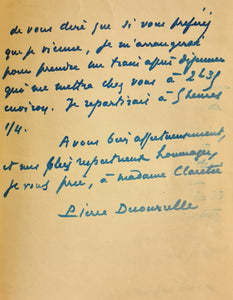 de vous dire que si vous préférez
que je vienne, je m'arrangerai
pour prendre un train après déjeuner
qui me mettra chez vous à 2h35
environ. Je repartirai à 5 heures
1/4.
A vous bien affectueusement,
et mes respectueux hommages,
je vous prie, à madame Claretie
Pierre Decourcelle